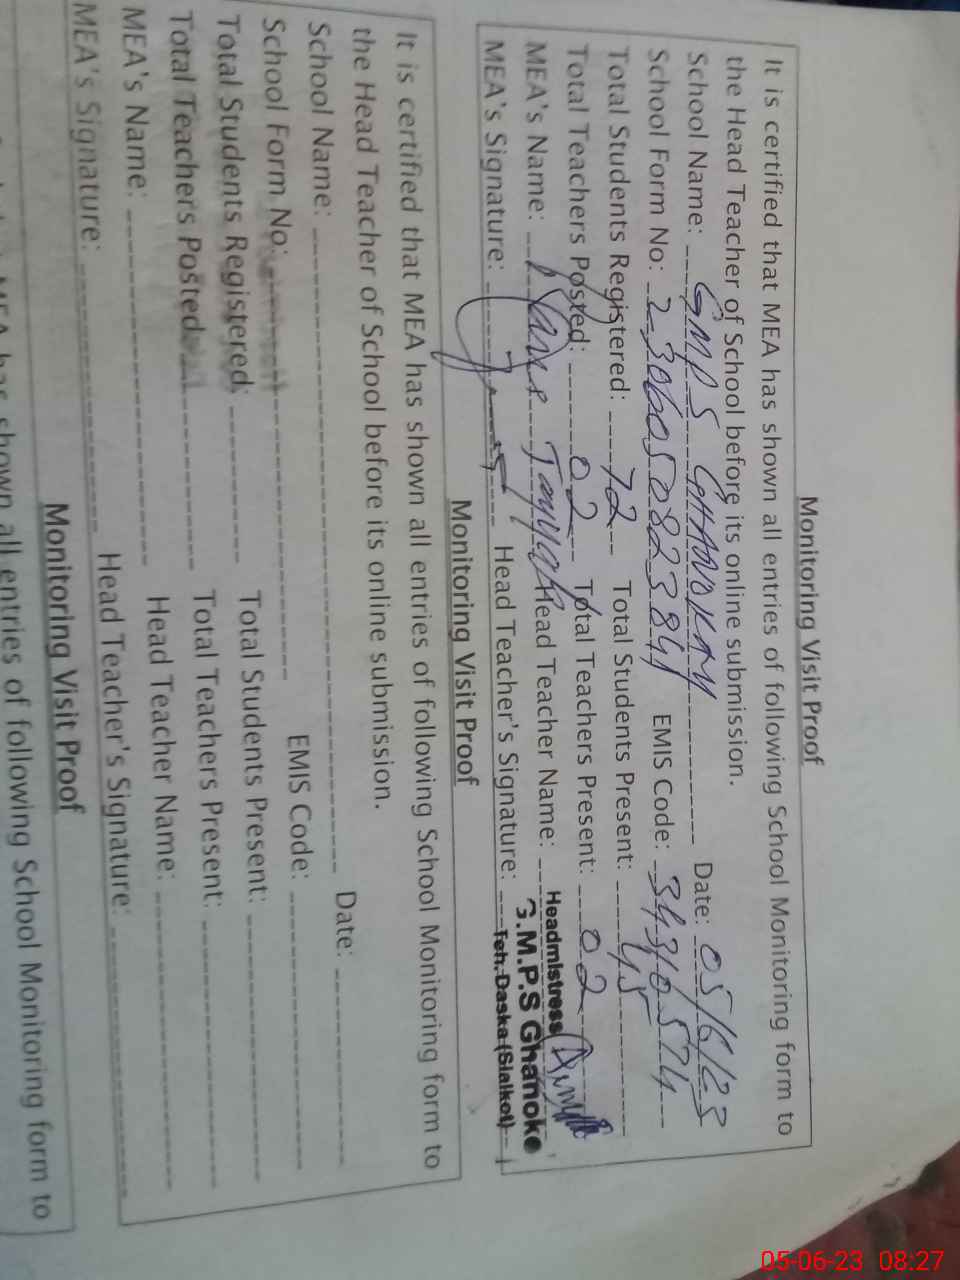 Monitoring Visit Proof
It is certified that MEA has shown all entries of following School Monitoring form to
the Head Teacher of School before its online submission.
School Name: GMPS GHANOKAY Date: 05/6/23
School Form No: EMIS Code: 34310574
Total Students Registered: 72 Total Students Present: 45
Total Teachers Posted: 02 Total Teachers Present: 02
MEA's Name: Head Teacher Name: Headmistress
G.M.P.S Ghanoke
MEA's Signature: Head Teacher's Signature: Teh. Daska (Sialkot)
Monitoring Visit Proof
It is certified that MEA has shown all entries of following School Monitoring form to
the Head Teacher of School before its online submission.
School Name: Date:
School Form No: EMIS Code:
Total Students Registered: Total Students Present:
Total Teachers Posted: Total Teachers Present:
MEA's Name: Head Teacher Name:
MEA's Signature: Head Teacher's Signature:
Monitoring Visit Proof
MEA has shown all entries of following School Monitoring form to
05-06-23 08:27